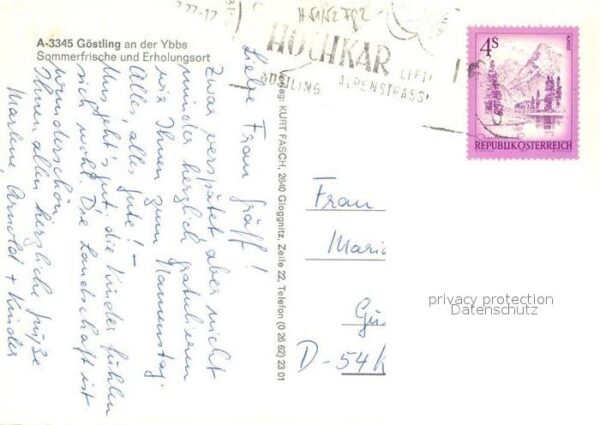 A-3345 Göstling an der Ybbs
Sommerfrische und Erholungsort
Liebe Frau Gräff!
Zwar verspätet aber nicht
minder herzlich gratulieren
wir Ihnen zum Namenstag.
Alles, alles Gute! -
Uns geht's gut, die Kinder fühlen
sich wohl. Die Landschaft ist
wunderschön.
Ihnen allen herzliche Grüße
Marlene, Arnold + Kinder
Verlag: KURT FASCH, 2640 Gloggnitz, Zeile 22, Telefon (0 26 62) 23 01
HOCHKAR
LIFT
GÖSTLING ALPENSTRASS
4S
REPUBLIK ÖSTERREICH
Frau
Maria
D-54
privacy protection
Datenschutz